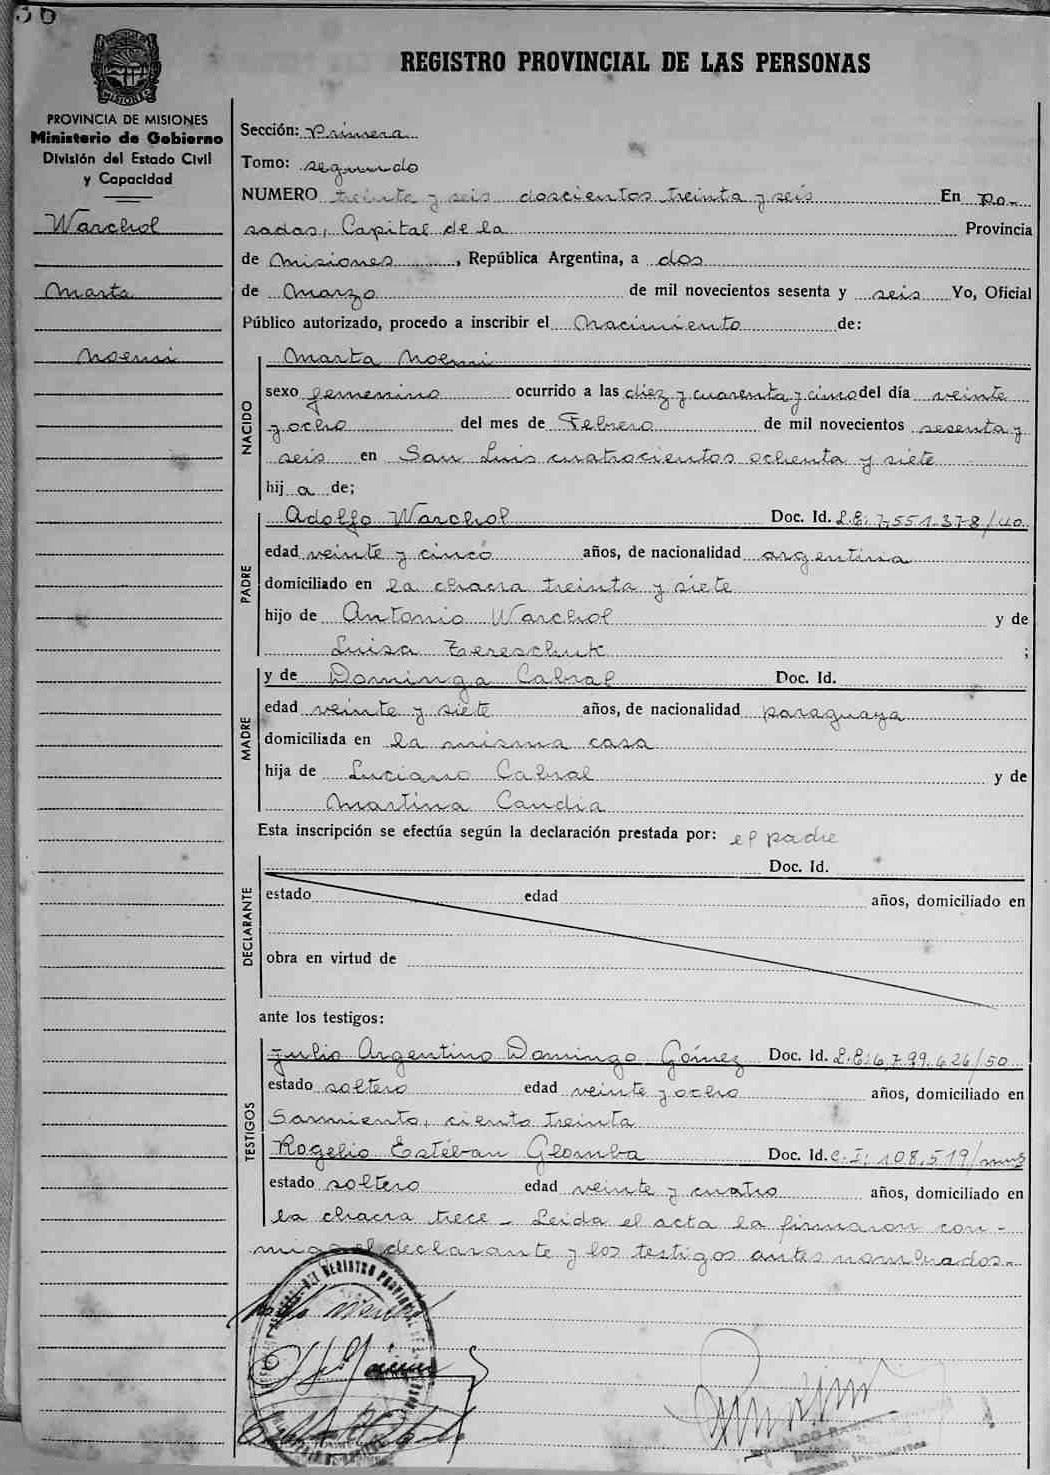 36
MISIONES
PROVINCIA DE MISIONES
Ministerio de Gobierno
División del Estado Civil
y Capacidad
Warchol
Marta
Noemi
REGISTRO PROVINCIAL DE LAS PERSONAS
Sección: Primera
Tomo: segundo
NUMERO treinta y seis doscientos treinta y seis En Po-
sadas, Capital de la Provincia
de Misiones, República Argentina, a dos
de Marzo de mil novecientos sesenta y seis Yo, Oficial
Público autorizado, procedo a inscribir el Nacimiento de:
NACIDO
Marta Noemi
sexo femenino ocurrido a las diez y cuarenta y cinco del día veinte
y ocho del mes de Febrero de mil novecientos sesenta y
seis en San Luis cuatrocientos ochenta y siete
hij a de;
PADRE
Adolfo Warchol Doc. Id. L.E: 7.551.378/40
edad veinte y cinco años, de nacionalidad argentina
domiciliado en la chacra treinta y siete
hijo de Antonio Warchol y de
Luisa Tereschuk ;
MADRE
y de Dominga Cabral Doc. Id.
edad veinte y siete años, de nacionalidad paraguaya
domiciliada en la misma casa
hija de Luciano Cabral y de
Martina Candia
Esta inscripción se efectúa según la declaración prestada por: el padre
DECLARANTE
Doc. Id.
estado edad años, domiciliado en
obra en virtud de
ante los testigos:
TESTIGOS
Julio Argentino Domingo Gómez Doc. Id. L.E: 6.799.426/50
estado soltero edad veinte y ocho años, domiciliado en
Sarmiento, ciento treinta
Rogelio Estéban Glomba Doc. Id. C.I: 108.519/mns
estado soltero edad veinte y cuatro años, domiciliado en
la chacra trece - Leida el acta la firmaron con-
migo el declarante y los testigos antes nombrados.-
DEL REGISTRO PROVINCIAL DE LAS